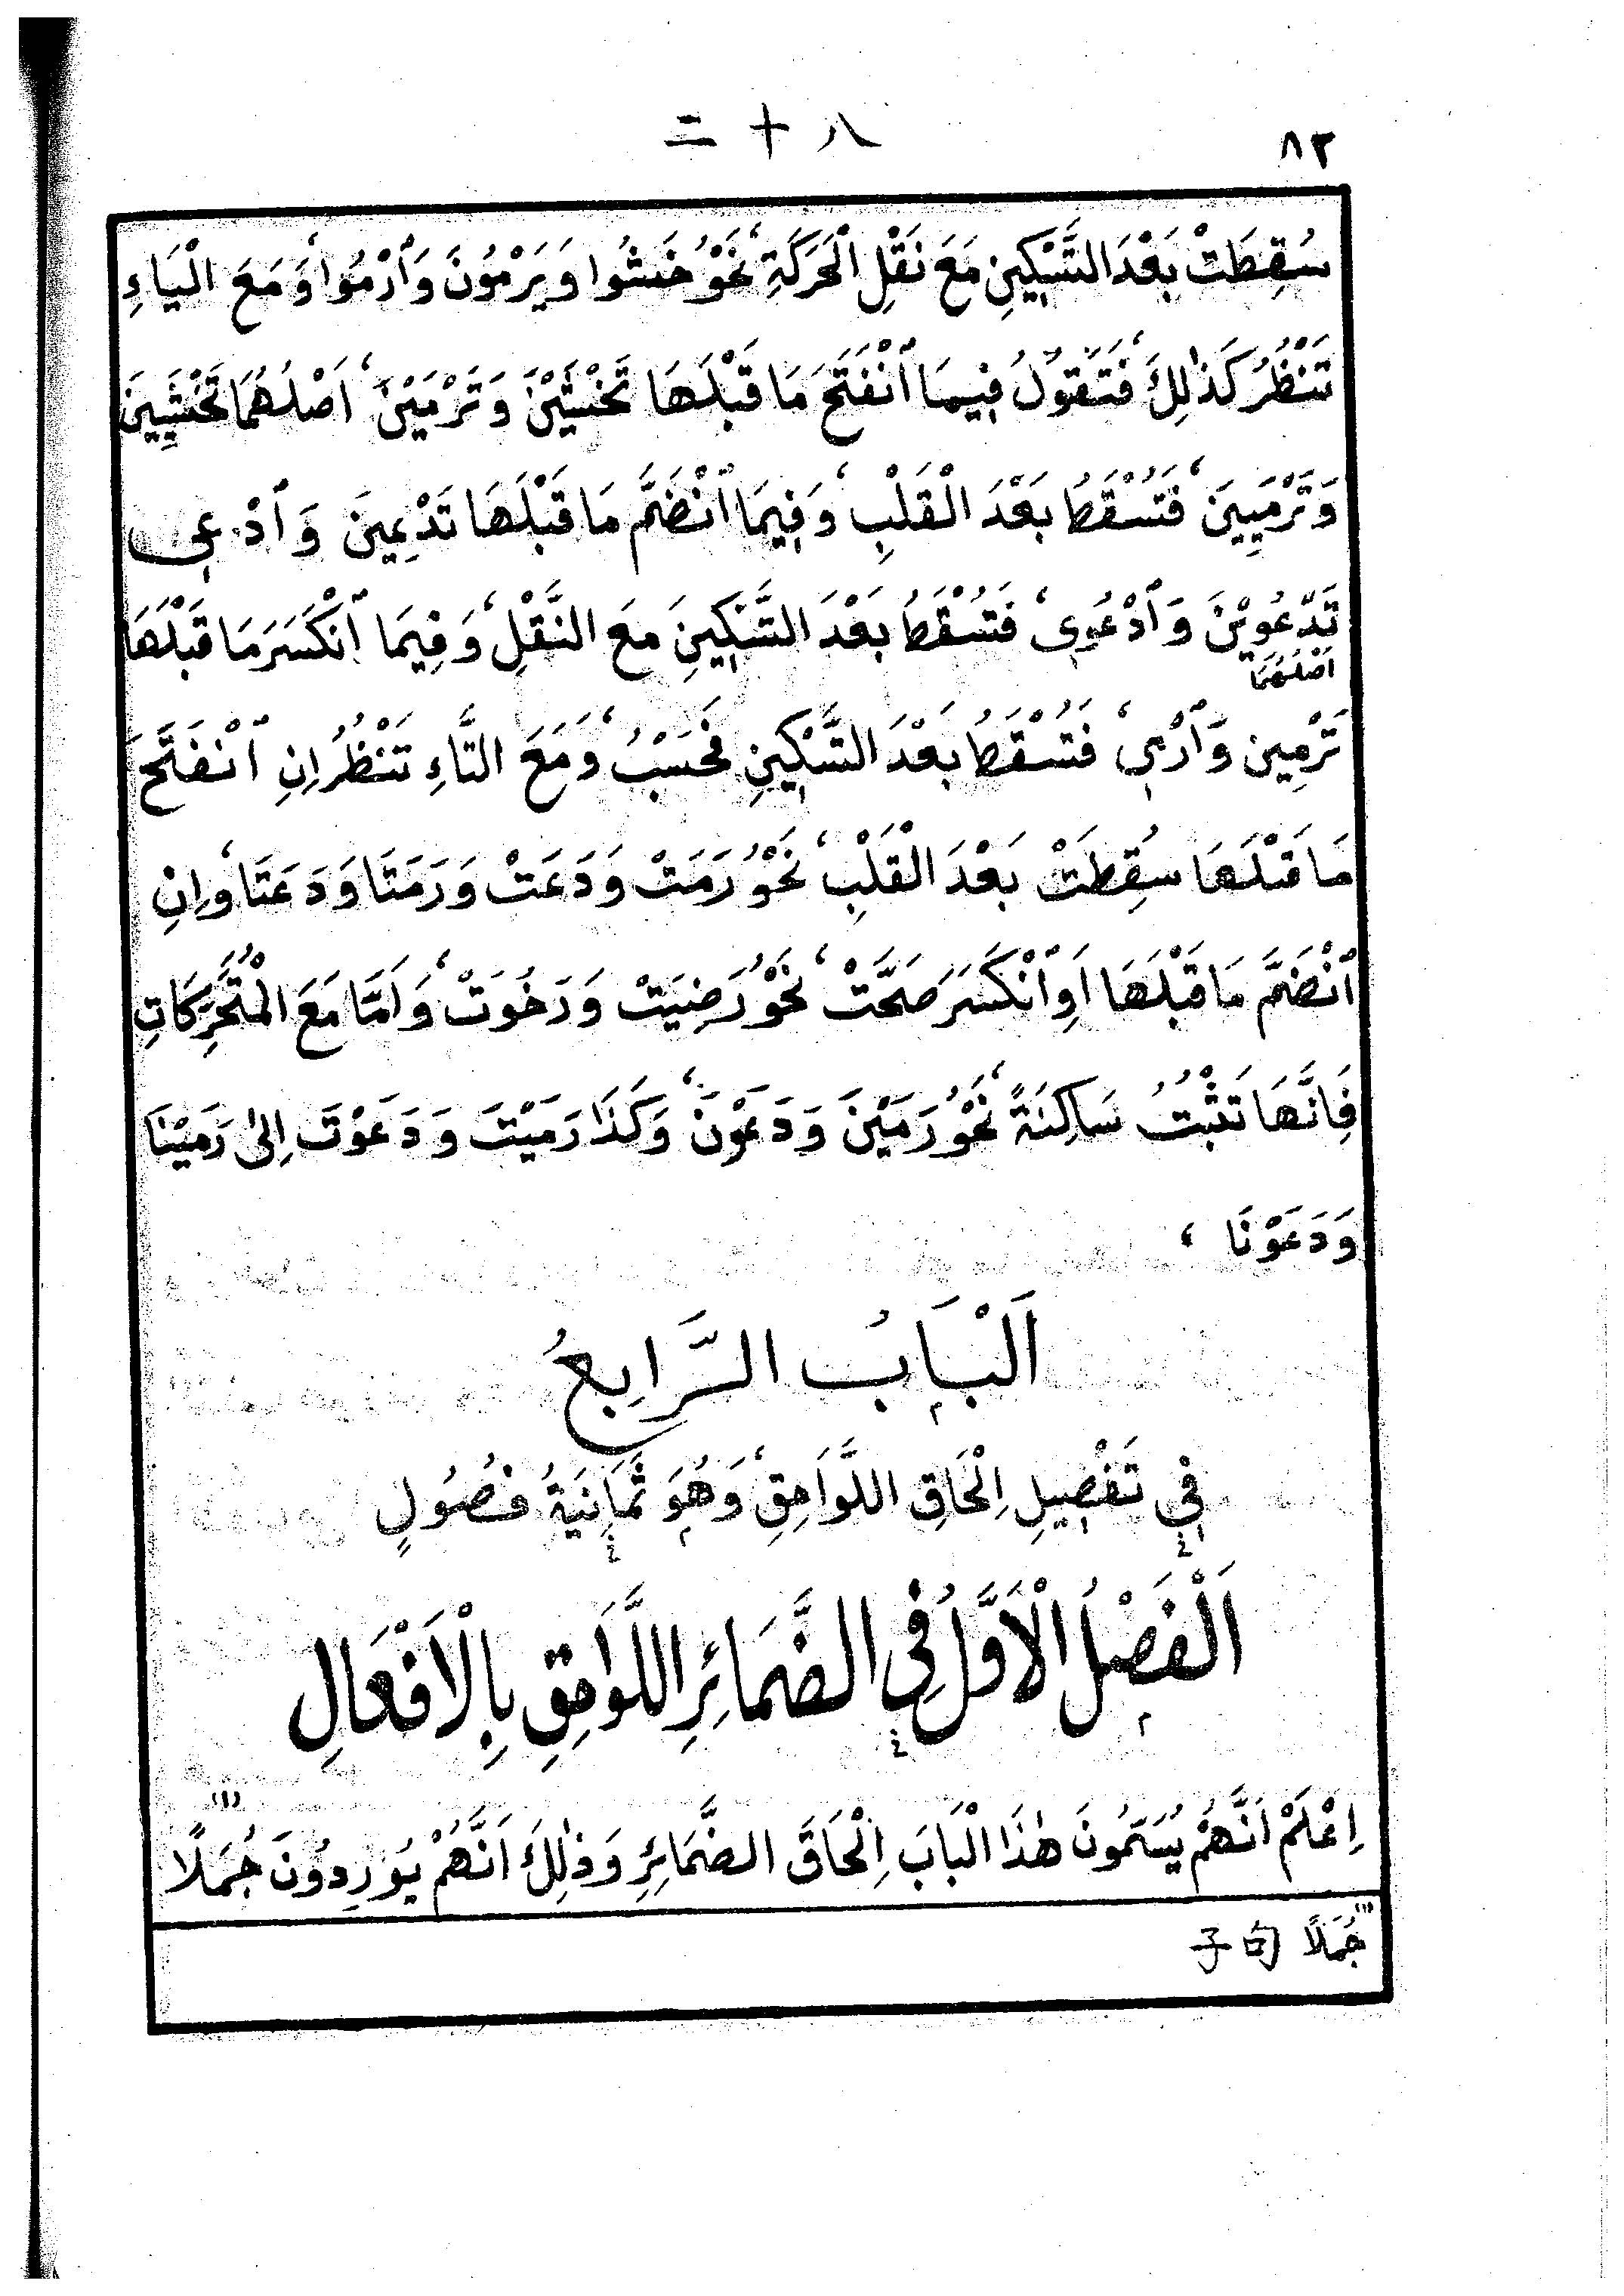 二十八
٨٢
سُقِطَتْ بَعْدَ التَّسْكِينِ مَعَ نَقْلِ الْحَرَكَةِ، نَحْوُ خَشُوا وَيَرْمُونَ وَٱرْمُوا، وَمَعَ الْيَاءِ
تَنْظُرُ كَذٰلِكَ، فَتَقُولُ فِيمَا ٱنْفَتَحَ مَا قَبْلَهَا تَخْشَيْنَ وَتَرْمَيْنَ، اَصْلُهُمَا تَخْشَيِينَ
وَتَرْمَيِينَ، فَتُسْقَطُ بَعْدَ الْقَلْبِ، وَفِيمَا ٱنْضَمَّ مَا قَبْلَهَا تَدْعِينَ وَٱدْعِى
تَدْعُوِينَ وَٱدْعُوِى، فَتُسْقَطُ بَعْدَ التَّسْكِينِ مَعَ النَّقْلِ، وَفِيمَا ٱنْكَسَرَ مَا قَبْلَهَا
اَصْلُهُمَا
تَرْمِينَ وَٱرْمِى، فَتُسْقَطُ بَعْدَ التَّسْكِينِ فَحَسْبُ، وَمَعَ التَّاءِ تَنْظُرُ اِنِ ٱنْفَتَحَ
مَا قَبْلَهَا سُقِطَتْ بَعْدَ الْقَلْبِ، نَحْوُ رَمَتْ وَدَعَتْ وَرَمَتَا وَدَعَتَا، وَاِنِ
ٱنْضَمَّ مَا قَبْلَهَا اَوِ ٱنْكَسَرَ صَحَّتْ، نَحْوُ رَضِيَتْ وَرَخُوَتْ، وَاَمَّا مَعَ الْمُتَحَرِّكَاتِ
فَاِنَّهَا تَثْبُتُ سَاكِنَةً، نَحْوُ رَمَيْنَ وَدَعَوْنَ، وَكَذَا رَمَيْتَ وَدَعَوْتَ اِلىٰ رَمَيْنَا
وَدَعَوْنَا ،
اَلْبَابُ الرَّابِعُ
فِي تَفْصِيلِ اِلْحَاقِ اللَّوَاحِقِ، وَهُوَ ثَمَانِيَةُ فُصُولٍ
اَلْفَصْلُ الْاَوَّلُ فِي الضَّمَائِرِ اللَّوَاحِقِ بِالْاَفْعَالِ
اِعْلَمْ اَنَّهُمْ يُسَمُّونَ هٰذَا الْبَابَ اِلْحَاقَ الضَّمَائِرِ وَذٰلِكَ اَنَّهُمْ يُورِدُونَ جُمَلًا (١)
(١) جُمَلًا 句子